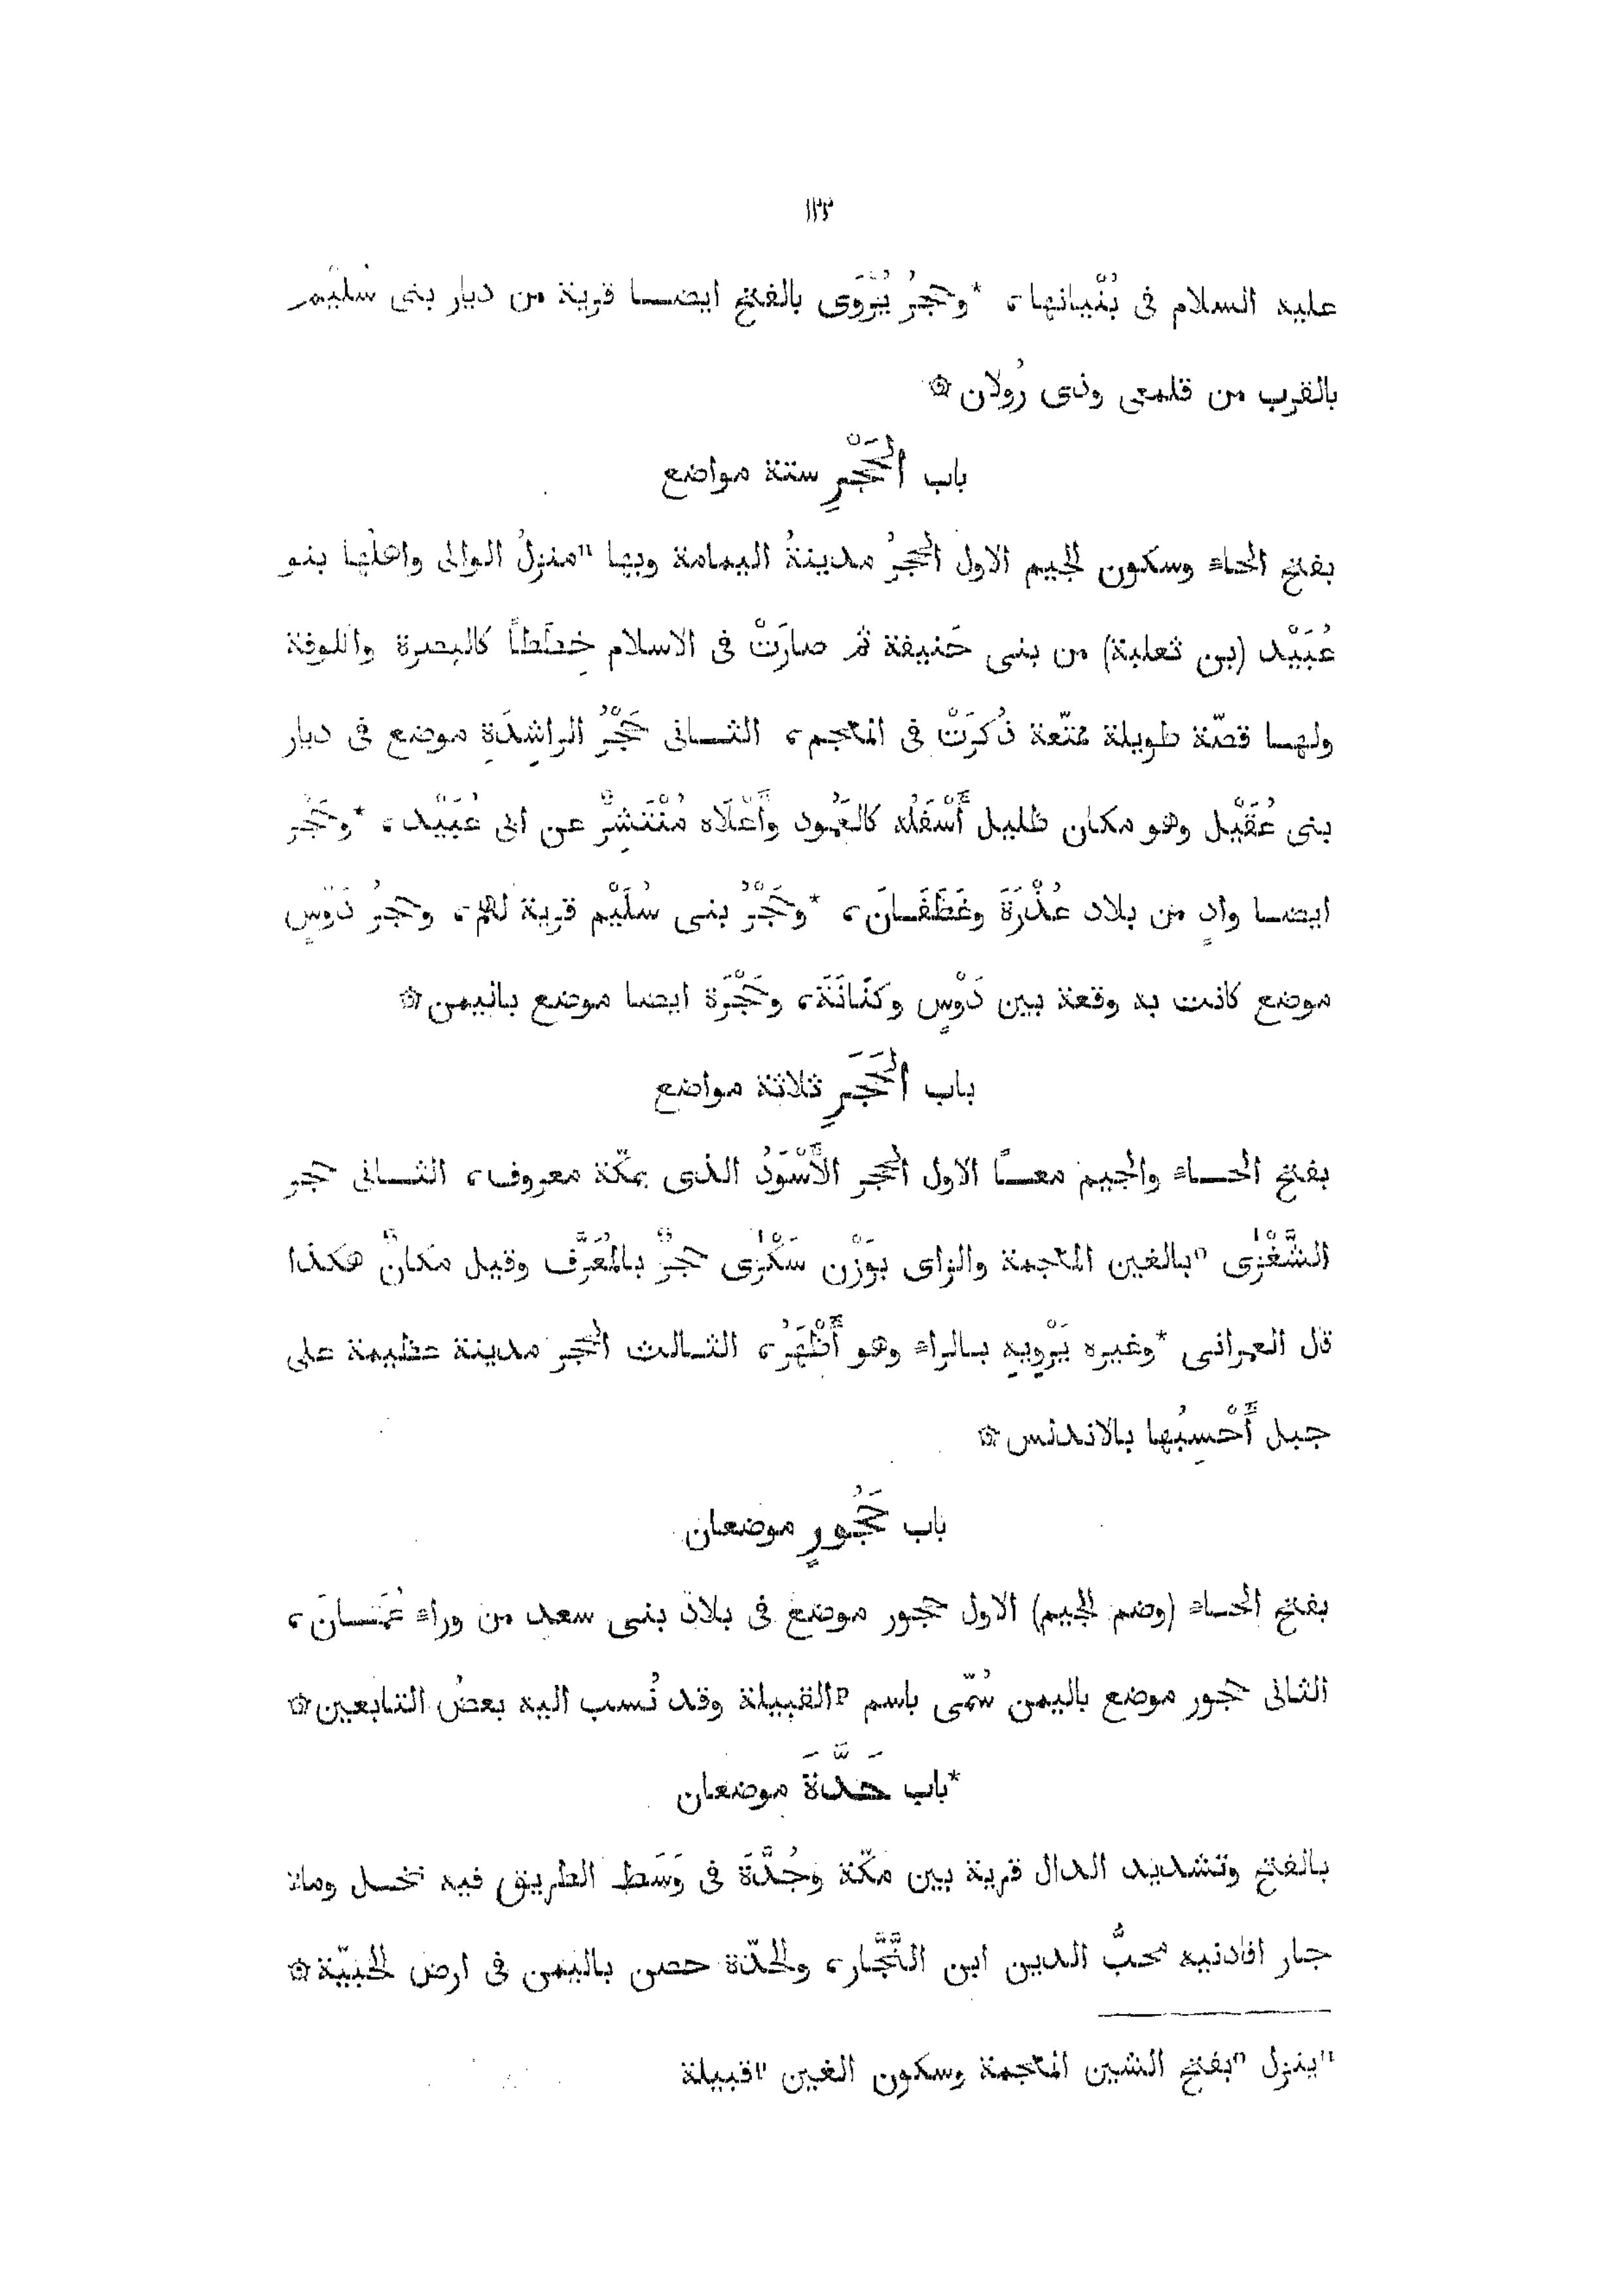 ١٢٣
عليه السلام فى بُنْيانها، *وحجرُ يُرْوَى بالفتح ايضا قرية من ديار بنى سُلَيْم
بالقرب من قلهى وذى رُولان ۞
باب الحَجْرِ ستة مواضع
بفتح الحاء وسكون الجيم الاول الحجرُ مدينةُ اليمامة وبها ⁿمنزلُ الوالى واهلُها بنو
عُبَيْد (بن ثعلبة) من بنى حَنيفة ثم صارَتْ فى الاسلام خِطَطاً كالبصرة والكوفة
ولها قصّة طويلة ممتّعة ذُكرَتْ فى المعجم، الثانى حَجْرُ الراشِدَةِ موضع فى ديار
بنى عُقَيْل وهو مكان ظليل أَسْفَلُه كالعَمُود وأَعْلَاه مُنْتَشِرٌ عن ابى عُبَيْد، *وحَجْر
ايضا وادٍ من بلاد عُذْرَةَ وغَطَفَانَ، *وحَجْرُ بنى سُلَيْم قرية لهم، وحجرُ دَوْسٍ
موضع كانت به وقعة بين دَوْسٍ وكنَانَةَ، وحَجْرَة ايضا موضع باليمن ۞
باب الحَجَرِ ثلاثة مواضع
بفتح الحاء والجيم معاً الاول الحجر الأَسْوَدُ الذى بمكّة معروف، الثانى حجر
الشَّغْزَى ⁿبالغين المعجمة والزاى بوَزْن سَكْرَى حجرٌ بالمُعَرَّف وقيل مكانٌ هكذا
قال العمرانى *وغيره يَرْويهِ بالراء وهو أَظْهَرُ، الثالث الحجر مدينة عظيمة على
جبل أَحْسِبُها بالاندلس ۞
باب حَجُورٍ موضعان
بفتح الحاء (وضم الجيم) الاول حجور موضع فى بلاد بنى سعد من وراء عُمَانَ،
الثانى حجور موضع باليمن سُمّى باسم ᵖالقبيلة وقد نُسب اليه بعضُ التابعين ۞
*باب حَدَّةَ موضعان
بالفتح وتشديد الدال قرية بين مكّة وجُدَّةَ فى وَسَط الطريق فيه نخل وماء
جار افادنيه محبُّ الدين ابن النَّجَّار، والحَدّة حصن باليمن فى ارض الحَبيّة ۞
ⁿينزل ⁿبفتح الشين المعجمة وسكون الغين ⁿقبيلة